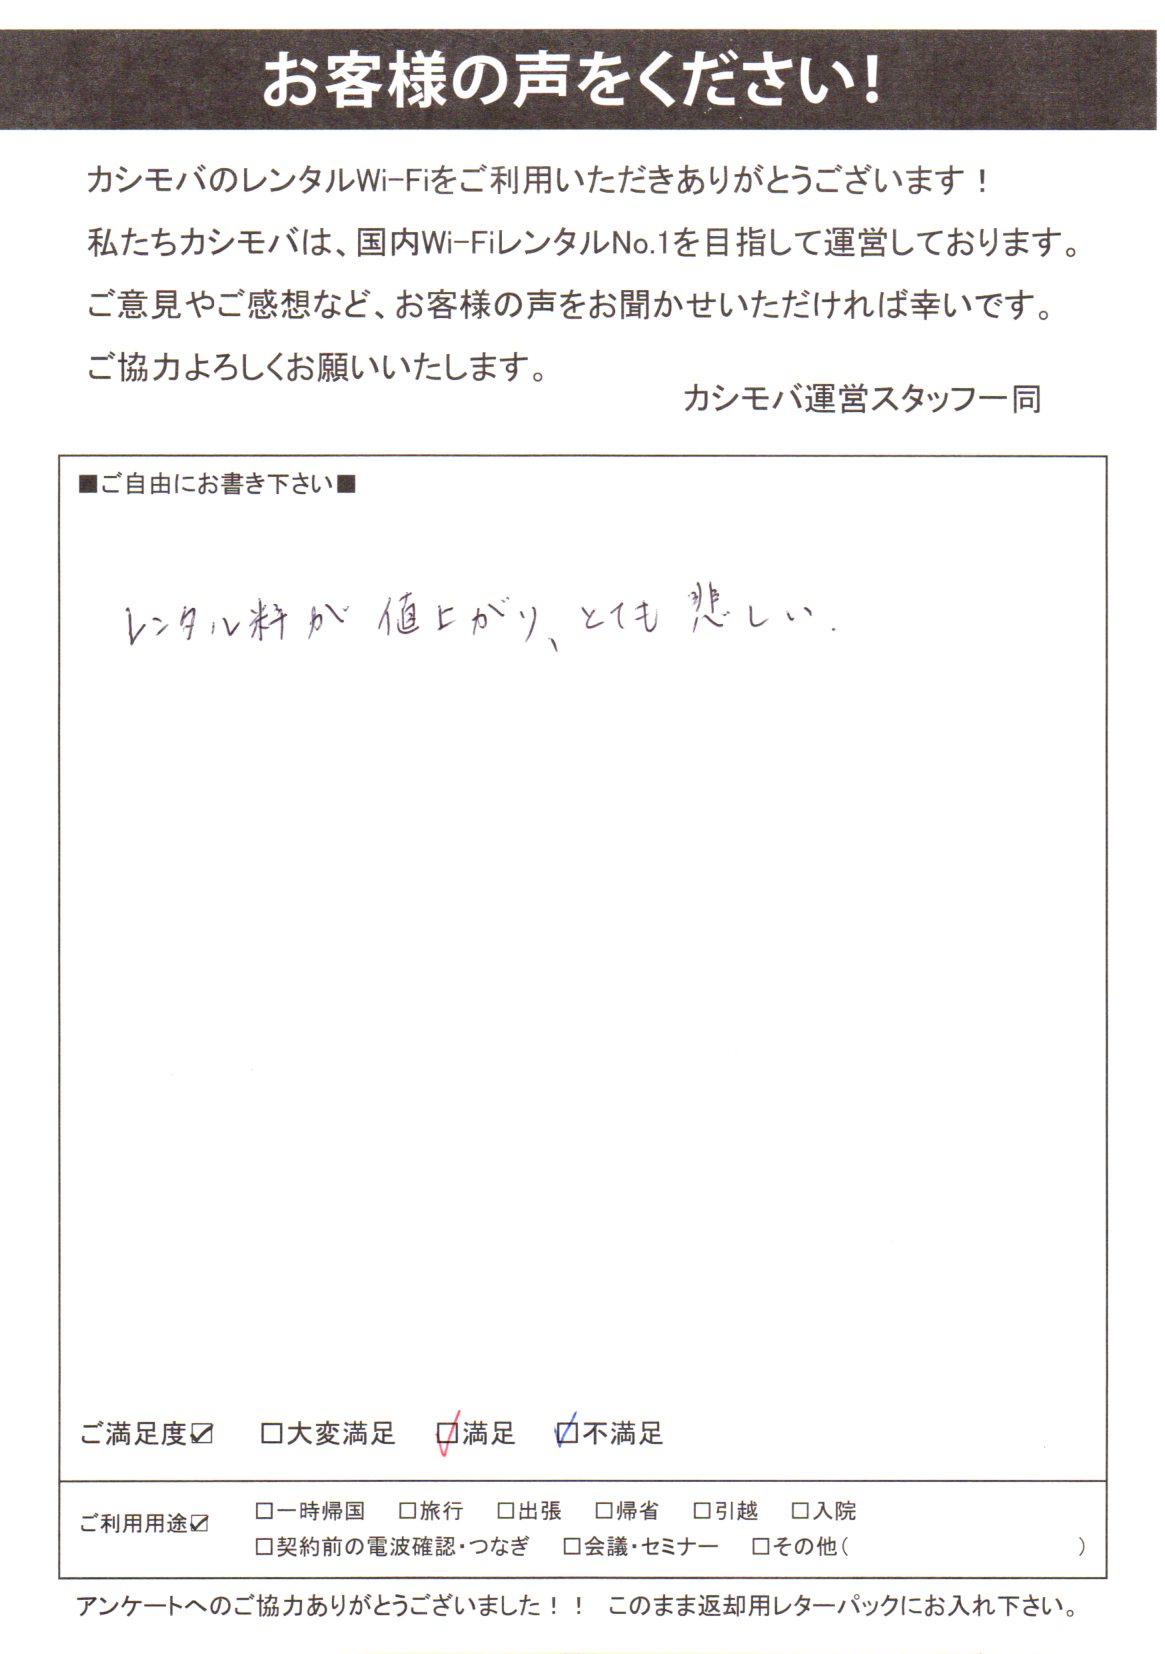 お客様の声をください!
カシモバのレンタルWi-Fiをご利用いただきありがとうございます！
私たちカシモバは、国内Wi-FiレンタルNo.1を目指して運営しております。
ご意見やご感想など、お客様の声をお聞かせいただければ幸いです。
ご協力よろしくお願いいたします。
カシモバ運営スタッフ一同
■ご自由にお書き下さい■
レンタル料が値上がり、とても悲しい.
ご満足度☑ □大変満足 ☑満足 ☑不満足
ご利用用途☑ □一時帰国 □旅行 □出張 □帰省 □引越 □入院
□契約前の電波確認・つなぎ □会議・セミナー □その他( )
アンケートへのご協力ありがとうございました！！ このまま返却用レターパックにお入れ下さい。